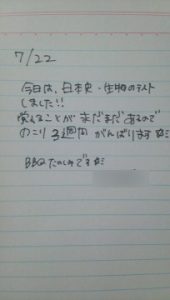 7/22
今日は、日本史・生物のテスト
しました!!
覚えることが まだまだあるので
のこり 3週間 がんばります
BBQ たのしみです